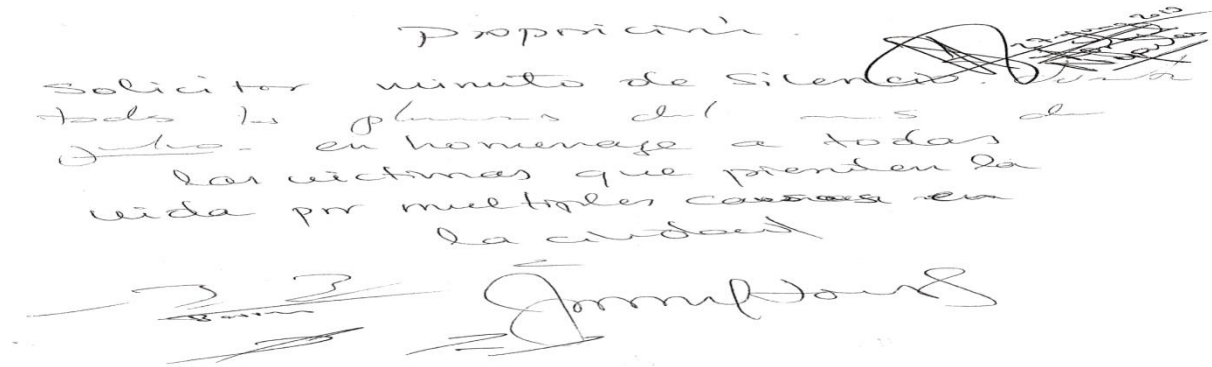 Proposición.
Solicitar minuto de silencio. durante
todas las plenarias del mes de
julio. en homenage a todas
las victimas que pierden la
vida por multiples causas en
la ciudad